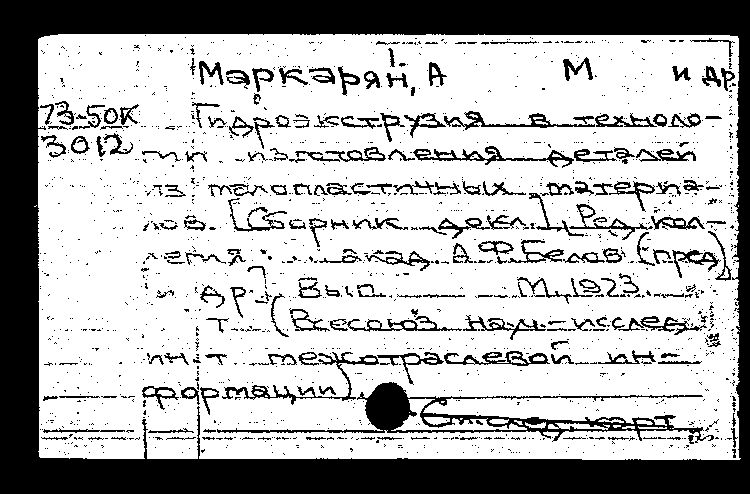 Маркарян, А М и др.
73-50К Гидроэкструзия в техноло-
3012 гии изготовления деталей
из малопластичных материа-
лов. [Сборник докл.], Ред. кол-
легия: ... акад. А.Ф. Белов (пред)
[и др.], Вып М., 1973.
т (Всесоюз. науч.-исслед
ин-т межотраслевой ин-
формации).
См. след. карт